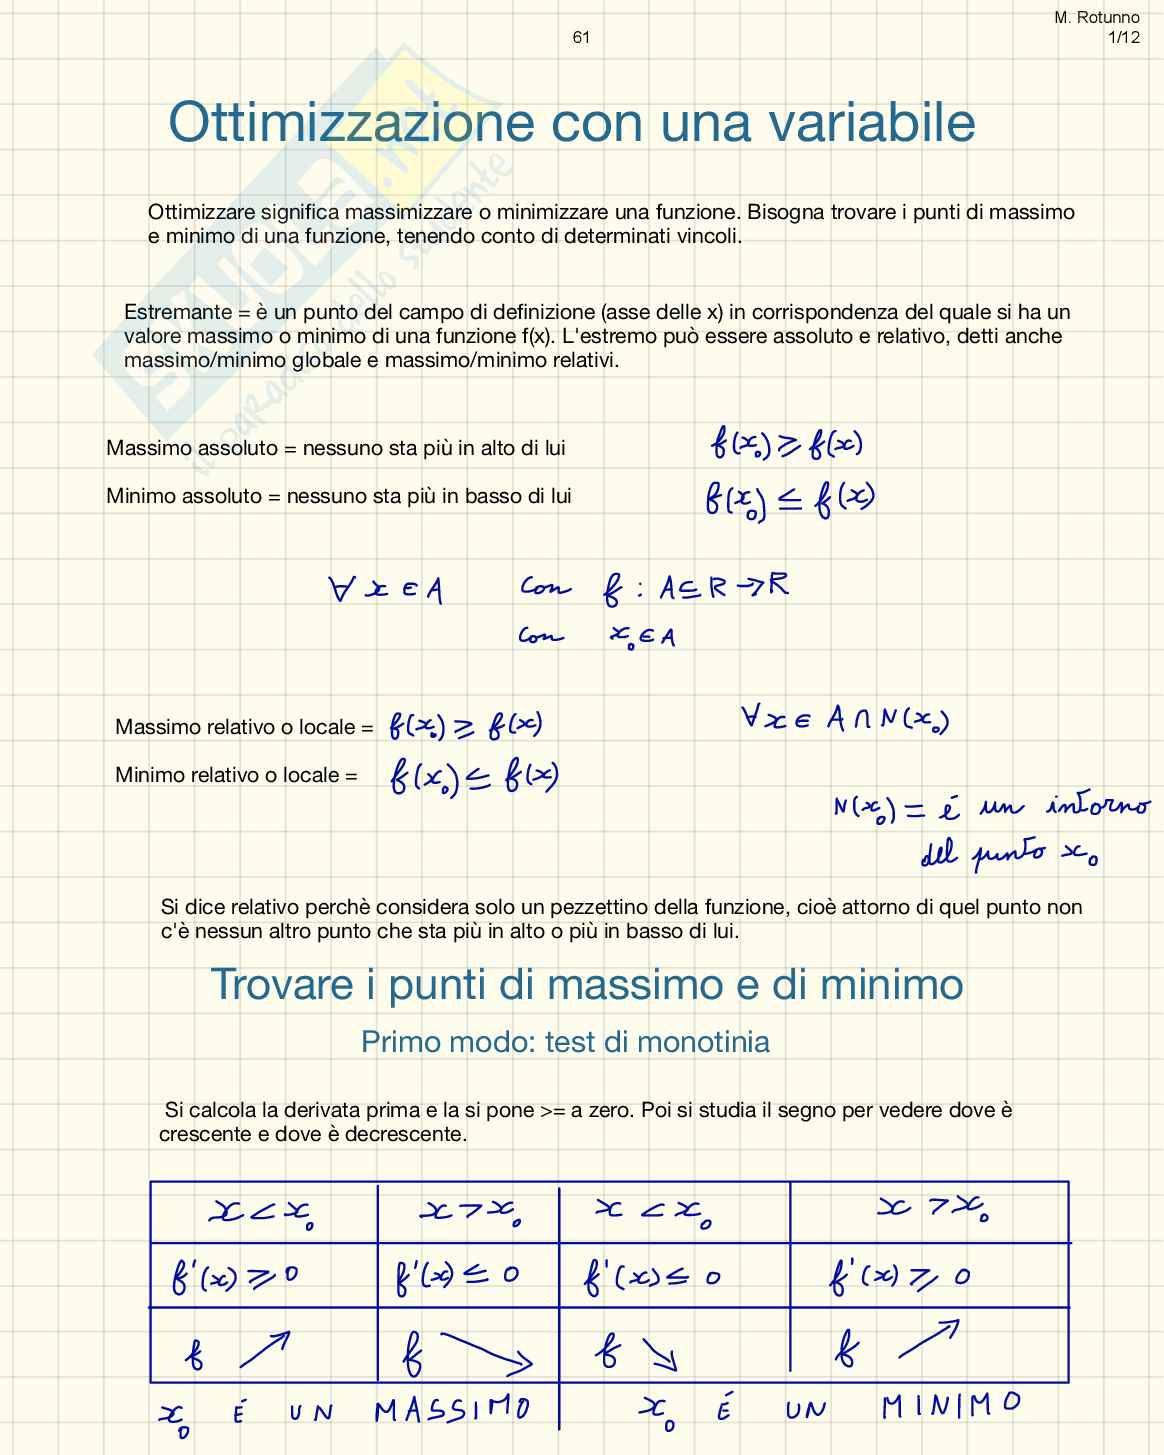 M. Rotunno
61
1/12
Ottimizzazione con una variabile
Ottimizzare significa massimizzare o minimizzare una funzione. Bisogna trovare i punti di massimo
e minimo di una funzione, tenendo conto di determinati vincoli.
Estremante = è un punto del campo di definizione (asse delle x) in corrispondenza del quale si ha un
valore massimo o minimo di una funzione f(x). L'estremo può essere assoluto e relativo, detti anche
massimo/minimo globale e massimo/minimo relativi.
Massimo assoluto = nessuno sta più in alto di lui f(x₀) ⩾ f(x)
Minimo assoluto = nessuno sta più in basso di lui f(x₀) ≤ f(x)
∀ x ∈ A con f : A ⊆ R → R
con x₀ ∈ A
Massimo relativo o locale = f(x₀) ⩾ f(x) ∀ x ∈ A ∩ N(x₀)
Minimo relativo o locale = f(x₀) ≤ f(x)
N(x₀) = é un intorno
del punto x₀
Si dice relativo perchè considera solo un pezzettino della funzione, cioè attorno di quel punto non
c'è nessun altro punto che sta più in alto o più in basso di lui.
Trovare i punti di massimo e di minimo
Primo modo: test di monotinia
Si calcola la derivata prima e la si pone >= a zero. Poi si studia il segno per vedere dove è
crescente e dove è decrescente.
x < x₀ x > x₀ x < x₀ x > x₀
f'(x) ⩾ 0 f'(x) ≤ 0 f'(x) ≤ 0 f'(x) ⩾ 0
f ↗ f ↘ f ↘ f ↗
x₀ É UN MASSIMO x₀ É UN MINIMO
SKUOLA.net
il paradiso dello studente